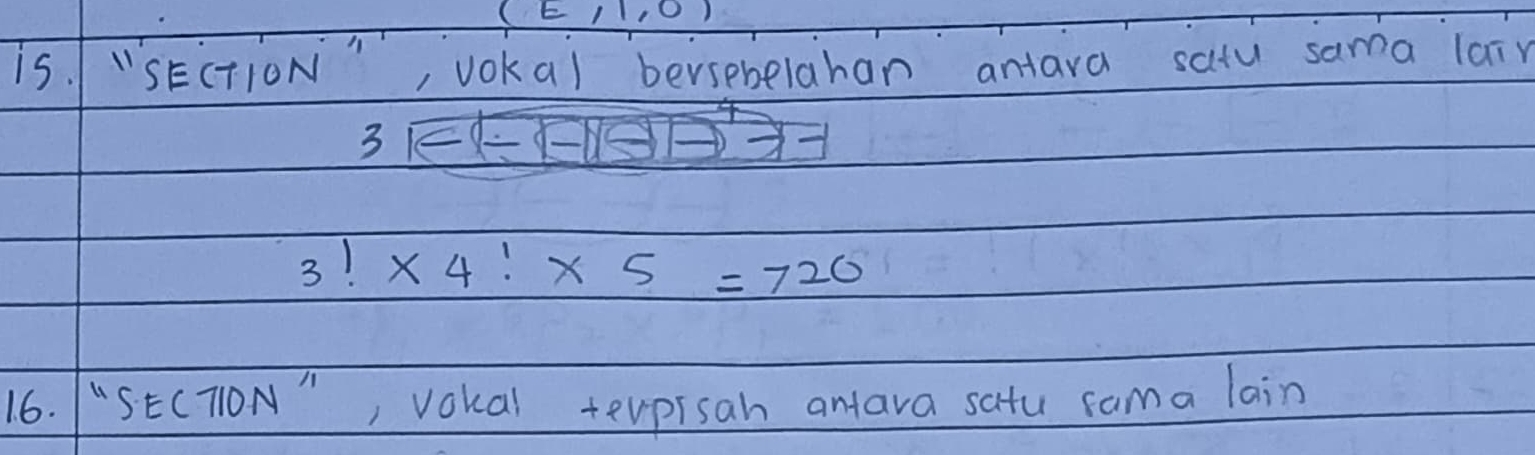 (E, 1, 0)
15. "SECTION", vokal bersebelahan antara satu sama lain
3 4
3! × 4! × 5 = 720
16. "SECTION", vokal terpisah antara satu sama lain